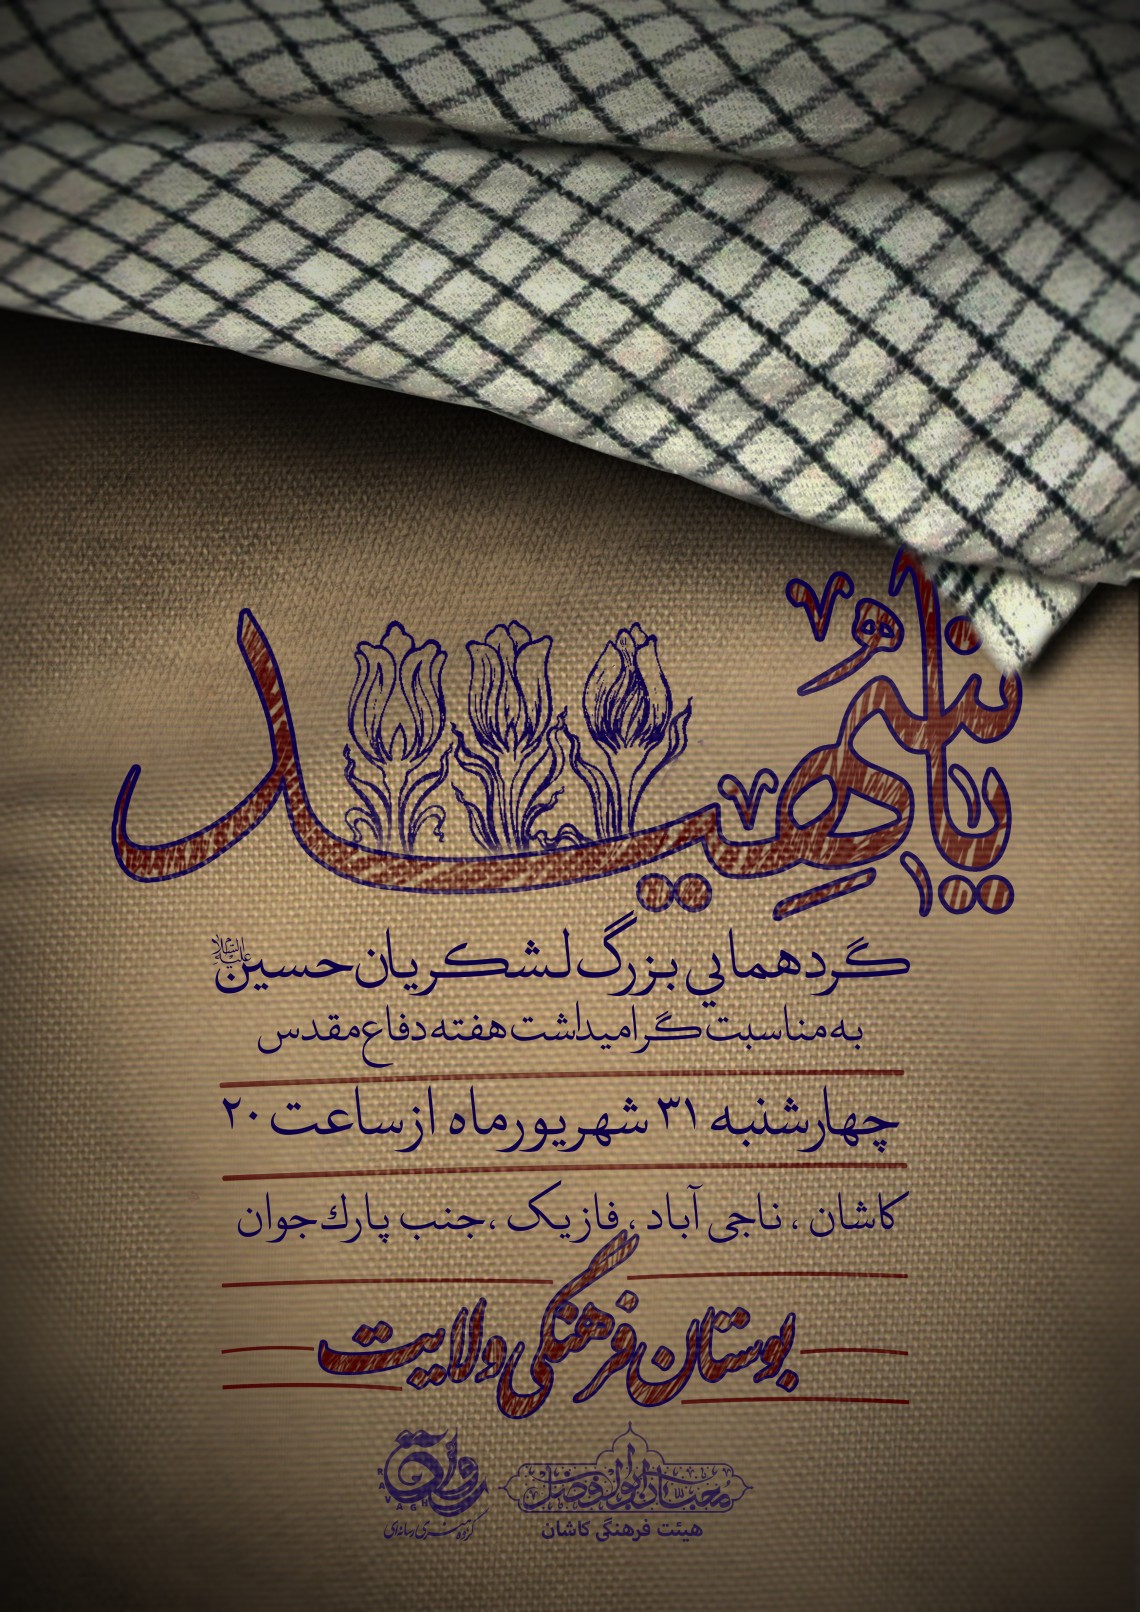 یا شهید
گردهمایی بزرگ لشکریان حسین علیه‌السلام
به مناسبت گرامیداشت هفته دفاع مقدس
چهارشنبه ۳۱ شهریور ماه از ساعت ۲۰
کاشان ، ناجی آباد ، فاز یک ، جنب پارك جوان
بوستان فرهنگی ولایت
محبان ابوالفضل
هیئت فرهنگی کاشان
رواق
RAVAGH
گروه هنری رسانه‌ای